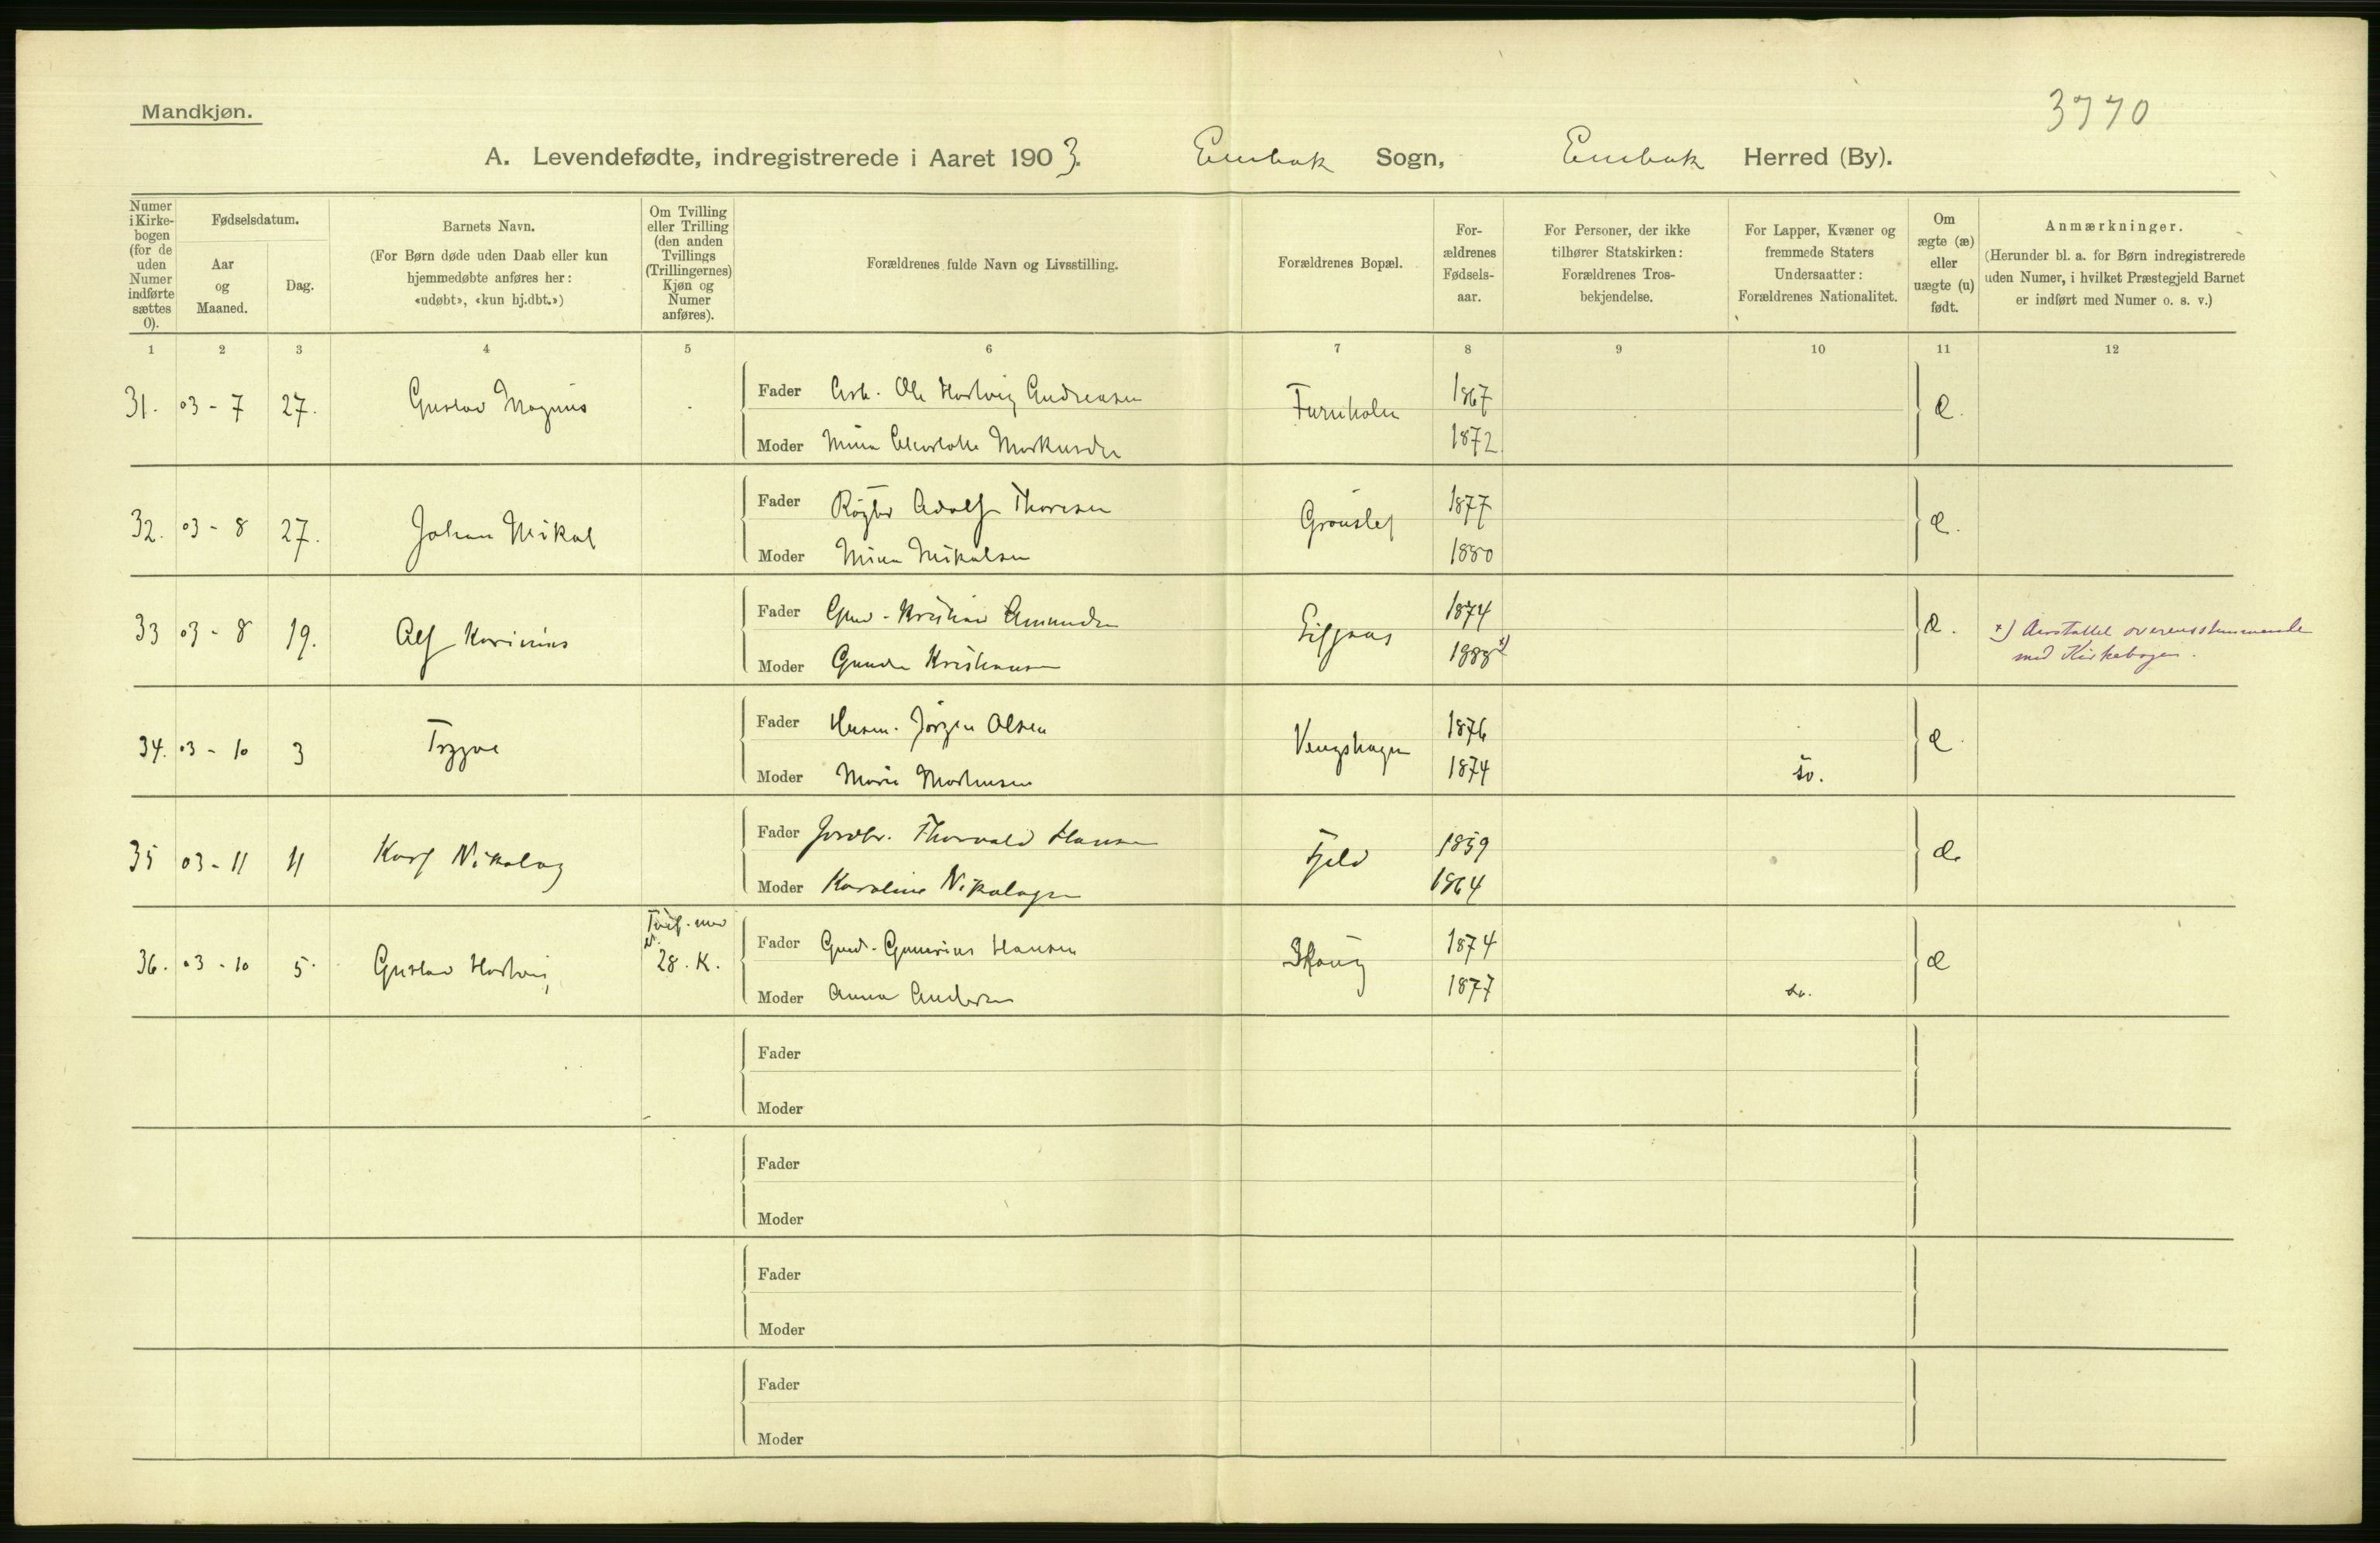 3770
Mandkjøn.
A. Levendefødte, indregistrerede i Aaret 1903. Enebak Sogn, Enebak Herred (By).
Numer i Kirkebogen (for de uden Numer indførte sættes 0).
Fødselsdatum.
Aar og Maaned.
Dag.
Barnets Navn.
(For Børn døde uden Daab eller kun hjemmedøbte anføres her: «udøbt», «kun hj.dbt.»)
Om Tvilling eller Trilling (den anden Tvillings (Trillingernes) Kjøn og Numer anføres).
Forældrenes fulde Navn og Livsstilling.
Forældrenes Bopæl.
Forældrenes Fødselsaar.
For Personer, der ikke tilhører Statskirken: Forældrenes Trosbekjendelse.
For Lapper, Kvæner og fremmede Staters Undersaatter: Forældrenes Nationalitet.
Om ægte (æ) eller uægte (u) født.
Anmærkninger.
(Herunder bl. a. for Børn indregistrerede uden Numer, i hvilket Præstegjeld Barnet er indført med Numer o. s. v.)
1 2 3 4 5 6 7 8 9 10 11 12
31. 03 - 7 27. Gustav Magnus Fader Arb. Ole Hartvig Andreasen Furuholm 1867 æ.
Moder Mina Charlotte Markusdtr 1872
32. 03 - 8 27. Johan Mikal Fader Røgter Adolf Thoresen Grønslet 1877 æ.
Moder Mina Mikalsen 1880
33 03 - 8 19. Alf Karinius Fader Gmd. Kristian Amundsen 1874 æ. x) Aarstallet overensstemmende
Moder Gunda Kristiansen 1888 x) med Kirkebogen.
34. 03 - 10 3 Trygve Fader Husm. Jørgen Olsen Vengshagen 1876 æ
Moder Marie Martinsen 1874 sv.
35 03 - 11 11 Karl Nikolay Fader Jordbr. Thorvald Hansen Fjeld 1859 æ
Moder Karoline Nikolaysen 1864
36. 03 - 10 5. Gustav Hartvig Tvil. med 28. K. Fader Gmd. Gunerius Hansen Skaug 1874 æ
Moder Anna Andersen 1877 sv.
Fader
Moder
Fader
Moder
Fader
Moder
Fader
Moder